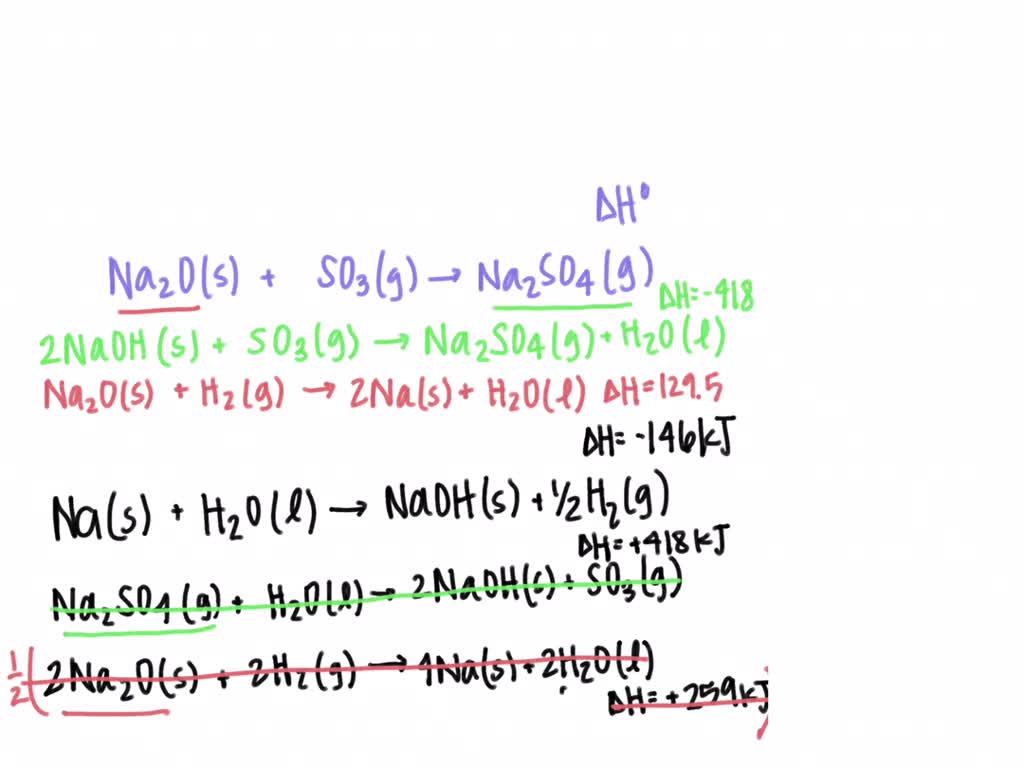 ΔH°
Na₂O(s) + SO₃(g) → Na₂SO₄(g)
ΔH=-418
2NaOH(s) + SO₃(g) → Na₂SO₄(g) + H₂O(l)
Na₂O(s) + H₂(g) → 2Na(s) + H₂O(l) ΔH=129.5
ΔH= -146kJ
Na(s) + H₂O(l) → NaOH(s) + ½H₂(g)
ΔH= +418kJ
Na₂SO₄(g) + H₂O(l) → 2NaOH(s) + SO₃(g)
½(2Na₂O(s) + 2H₂(g) → 4Na(s) + 2H₂O(l)
ΔH= +259kJ)